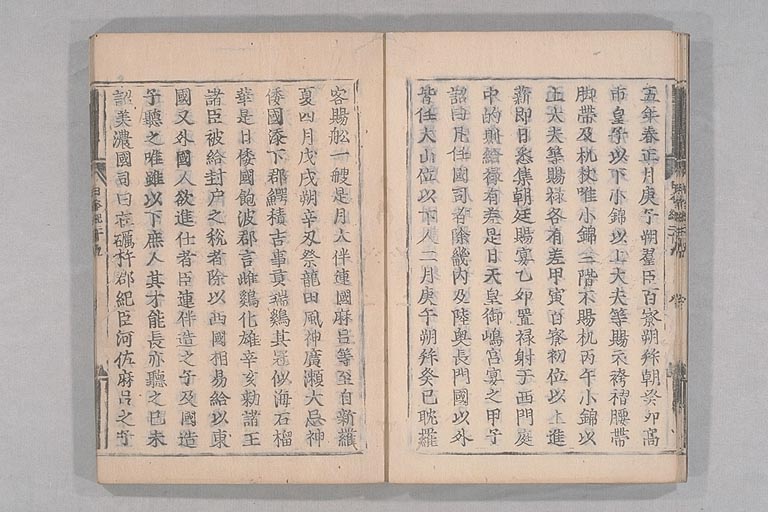 五年春正月庚子朔羣臣百寮朔拜朝癸卯高
市皇子以下小錦以上大夫等賜衣袴褶腰帶
脚帶及机杖唯小錦三階不賜机丙午小錦以
上大夫等賜禄各有差甲寅百寮初位以上進
薪即日悉集朝廷賜宴乙卯置禄射于西門庭
中的則給禄有差是日天皇御嶋宮宴之甲子
詔曰凡任國司者除畿內及陸奥長門國以外
皆任大山位以下人二月庚午朔癸巳耽羅
客賜舩一艘是月大伴連國麻呂等至自新羅
夏四月戊戌朔辛丑祭龍田風神廣瀬大忌神
倭國添下郡鰐積吉事貢瑞鷄其冠似海石榴
華是日倭國飽波郡言雌鷄化雄辛亥勅諸王
諸臣被給封戸之税者除以西國相易給以東
國又外國人欲進仕者臣連伴造之子及國造
子聽之唯雖以下庶人其才能長亦聽之己未
詔美濃國司曰在礪杵郡紀臣河佐麻呂之子